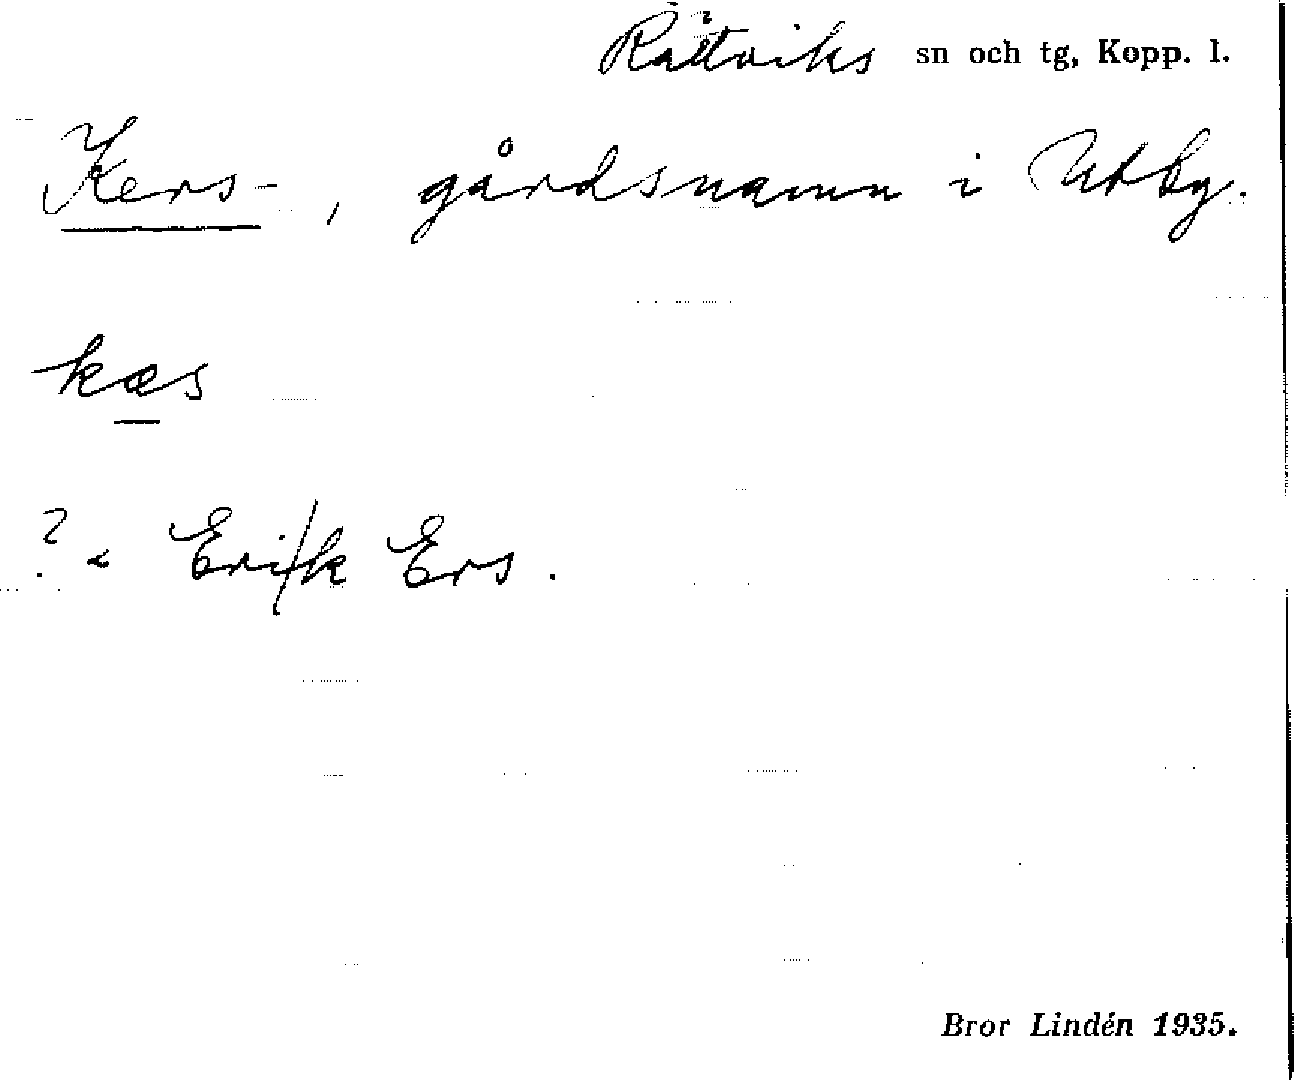 Rättviks sn och tg, Kopp. l.
Kers-, gårdsnamn i Utby.
kæs
? < Eri/k Ers.
Bror Lindén 1935.